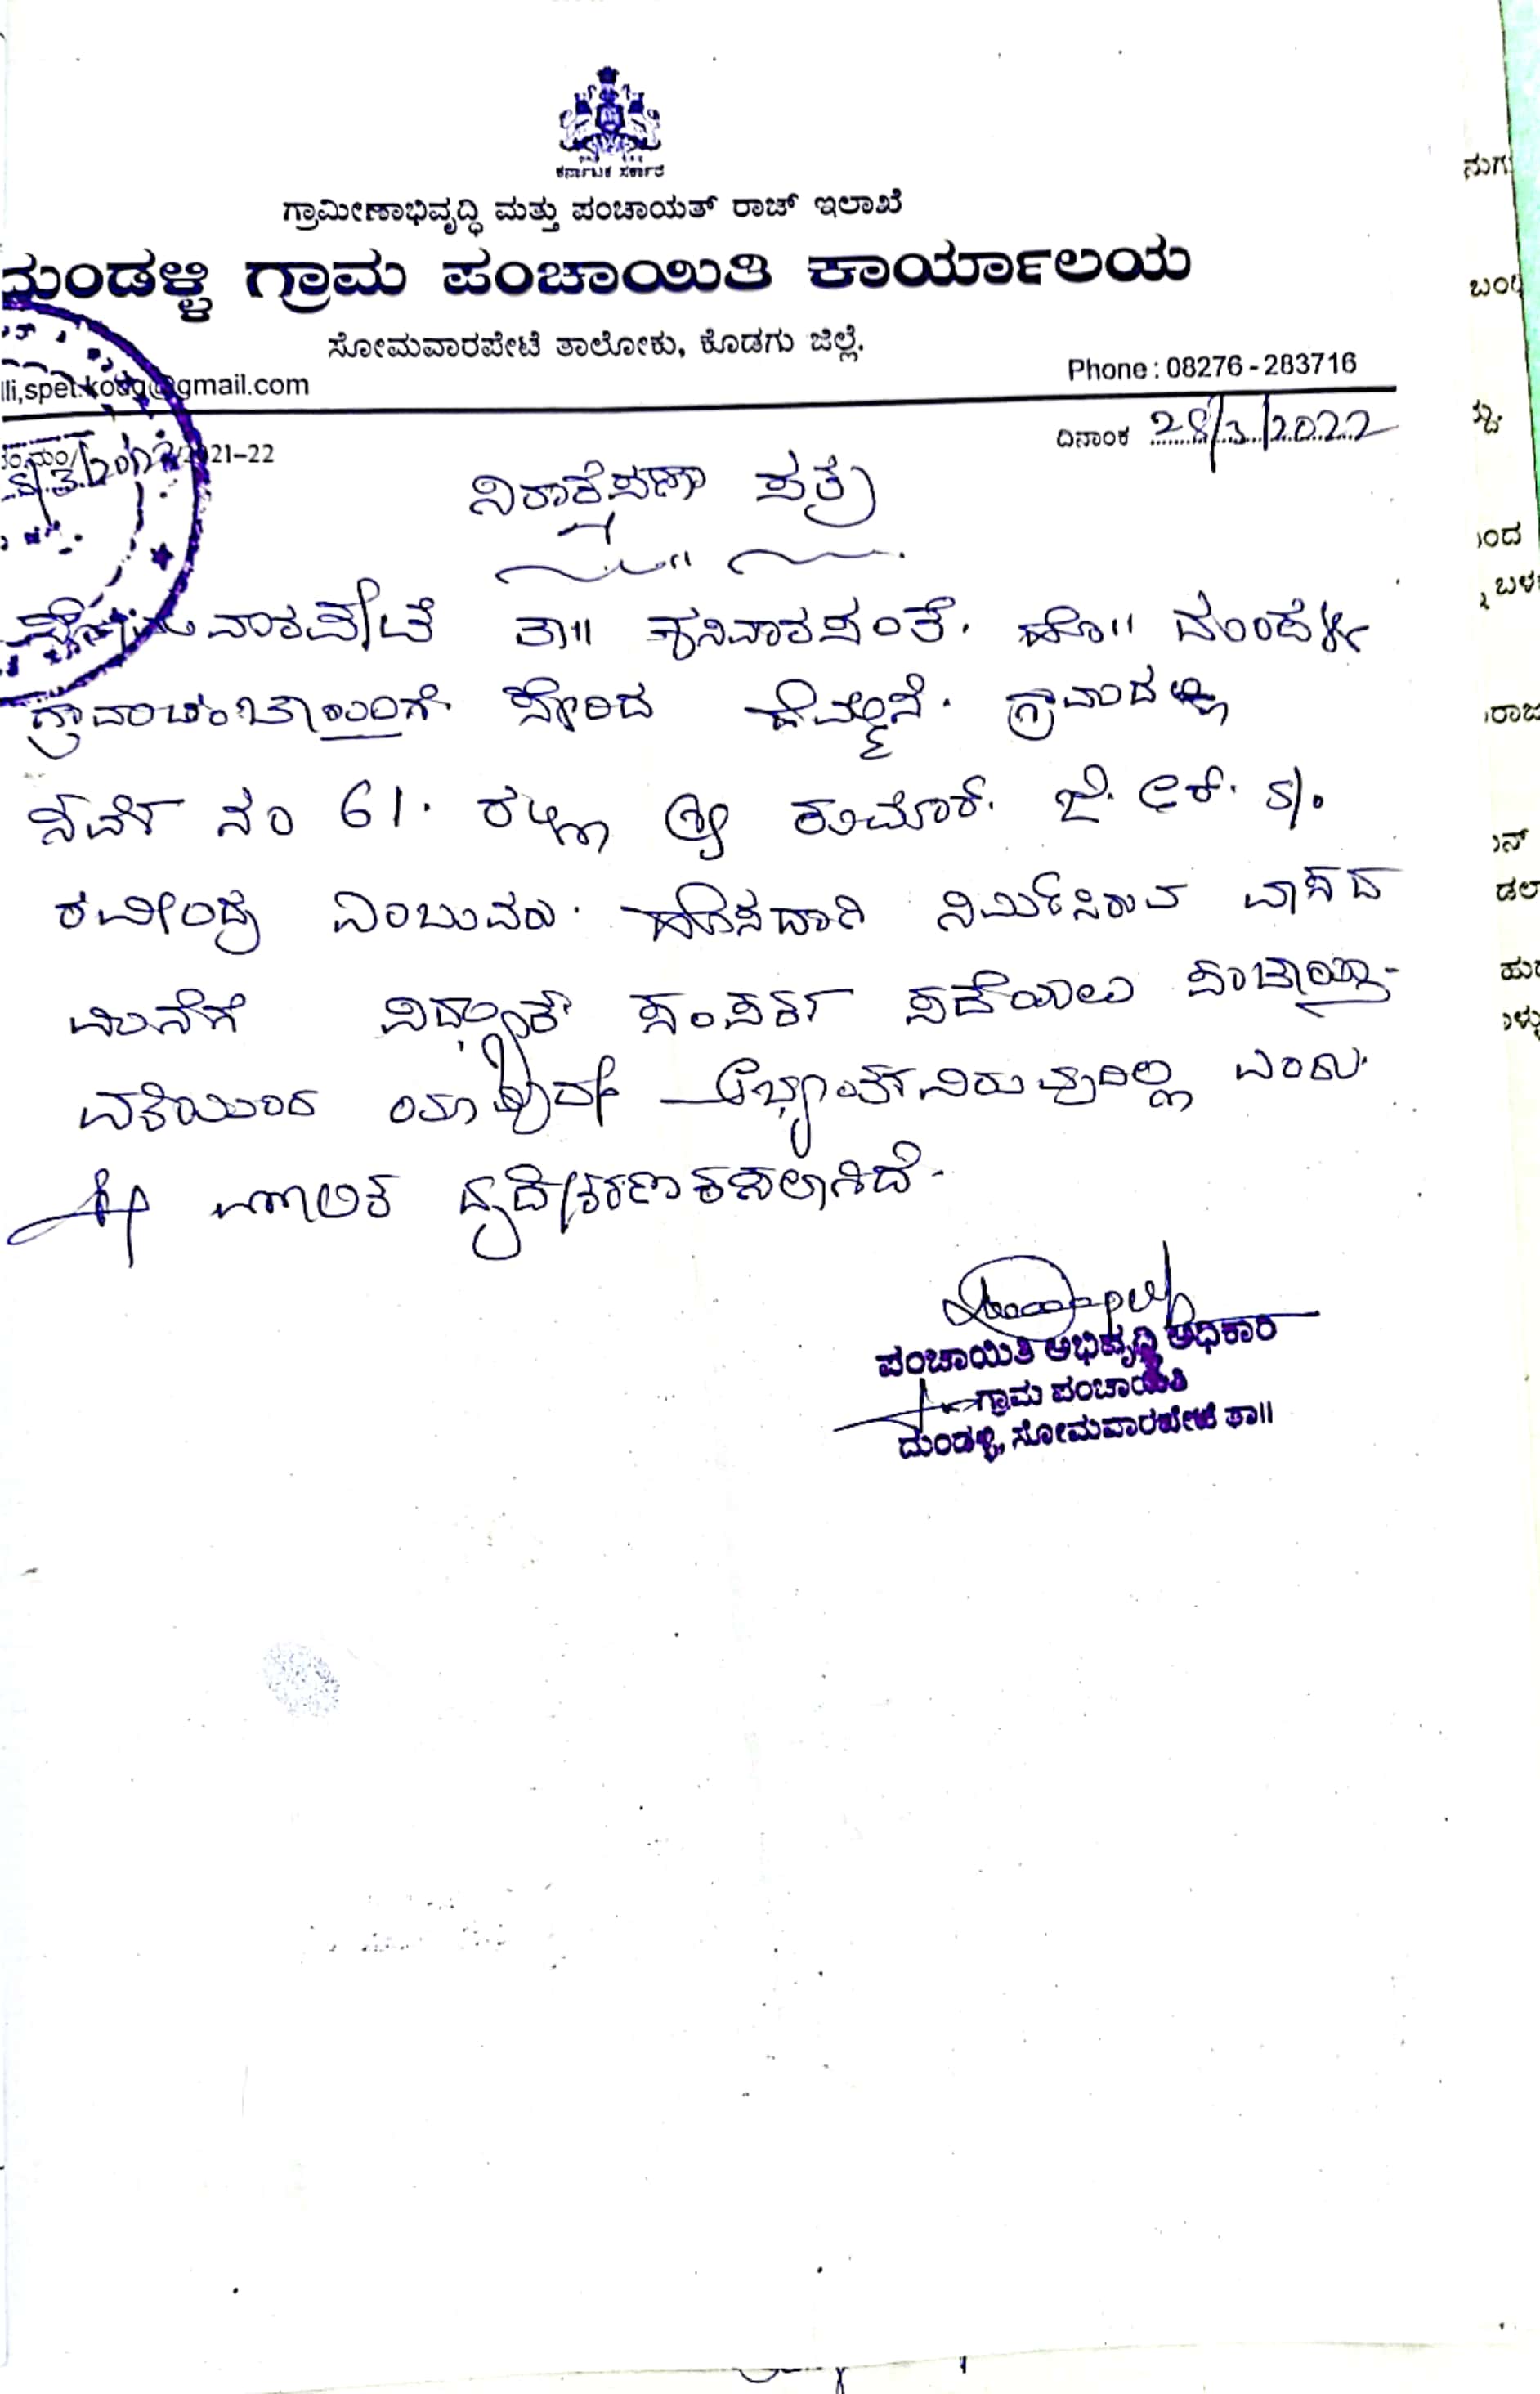 ಕರ್ನಾಟಕ ಸರ್ಕಾರ
ಗ್ರಾಮೀಣಾಭಿವೃದ್ಧಿ ಮತ್ತು ಪಂಚಾಯತ್ ರಾಜ್ ಇಲಾಖೆ
ದುಂಡಳ್ಳಿ ಗ್ರಾಮ ಪಂಚಾಯಿತಿ ಕಾರ್ಯಾಲಯ
ಸೋಮವಾರಪೇಟೆ ತಾಲೋಕು, ಕೊಡಗು ಜಿಲ್ಲೆ.
lli,spet.kodg@gmail.com
Phone : 08276 - 283716
2021-22
ದಿನಾಂಕ 28/3/2022
ನಿರಾಕ್ಷೇಪಣಾ ಪತ್ರ
ಸೋಮವಾರಪೇಟೆ ತಾ॥ ಶನಿವಾರಸಂತೆ. ಹೋ॥ ದುಂಡಳ್ಳಿ
ಗ್ರಾಮಪಂಚಾಯಿತಿಗೆ ಸೇರಿದ ಹೆಮ್ಮನೆ. ಗ್ರಾಮದಲ್ಲಿ
ಸರ್ವೆ ನಂ 61. ರಲ್ಲಿ ಶ್ರೀ ಕುಮಾರ್. ಜೆ. ಆರ್. S/o
ರವೀಂದ್ರ ಎಂಬುವರು. ಹೊಸದಾಗಿ ನಿರ್ಮಿಸಿರುವ ವಾಸದ
ಮನೆಗೆ ವಿದ್ಯುತ್ ಸಂಪರ್ಕ ಪಡೆಯಲು ಪಂಚಾಯ್ತಿ
ವತಿಯಿಂದ ಯಾವುದೇ ಅಭ್ಯಂತರವಿರುವುದಿಲ್ಲ ಎಂದು
ಈ ಮೂಲಕ ದೃಢೀಕರಿಸಲಾಗಿದೆ.
ಪಂಚಾಯಿತಿ ಅಭಿವೃದ್ಧಿ ಅಧಿಕಾರಿ
ಗ್ರಾಮ ಪಂಚಾಯಿತಿ
ದುಂಡಳ್ಳಿ, ಸೋಮವಾರಪೇಟೆ ತಾ॥